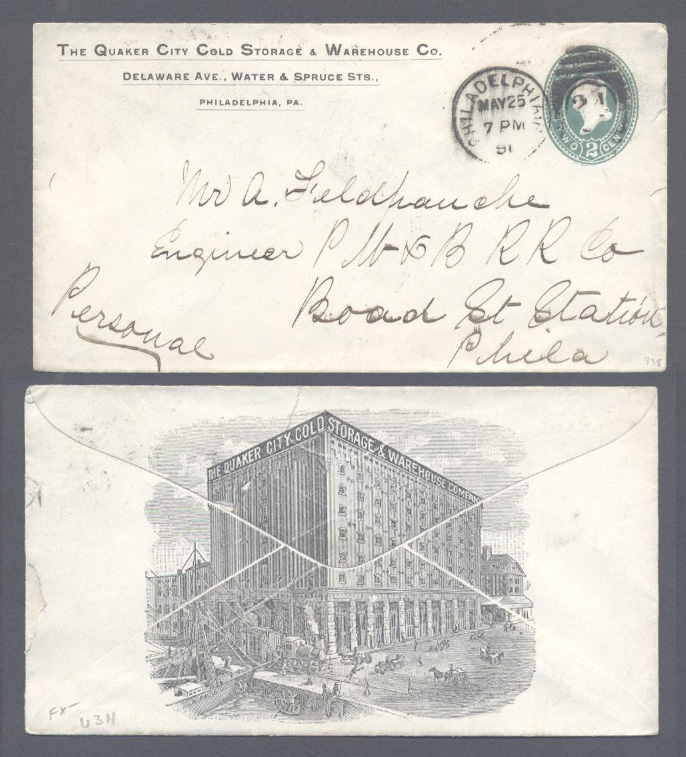 The Quaker City Cold Storage & Warehouse Co.
Delaware Ave., Water & Spruce Sts.,
Philadelphia, Pa.
PHILADELPHIA, PA.
MAY 25
7 PM
91
TWO 2 CENTS
Mr A. Feldpauche
Engineer P W & B RR Co
Boad St Station,
Phila
Personal
938
THE QUAKER CITY COLD STORAGE & WAREHOUSE COMPANY
U311